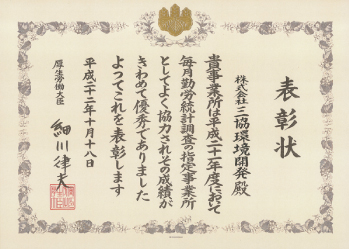 表彰状
株式会社三協環境開発殿
貴事業所は平成二十一年度において
毎月勤労統計調査の指定事業所
としてよく協力されその成績が
きわめて優秀でありました
よってこれを表彰します
平成二十二年十月十八日
厚生労働大臣
細川律夫